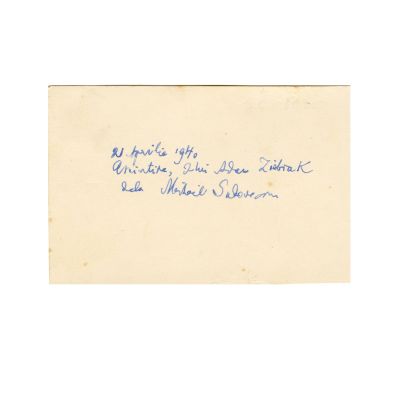 21 Aprilie 1940
Amintire, D-lui Adam Ziobrak
dela Mihail Sadoveanu